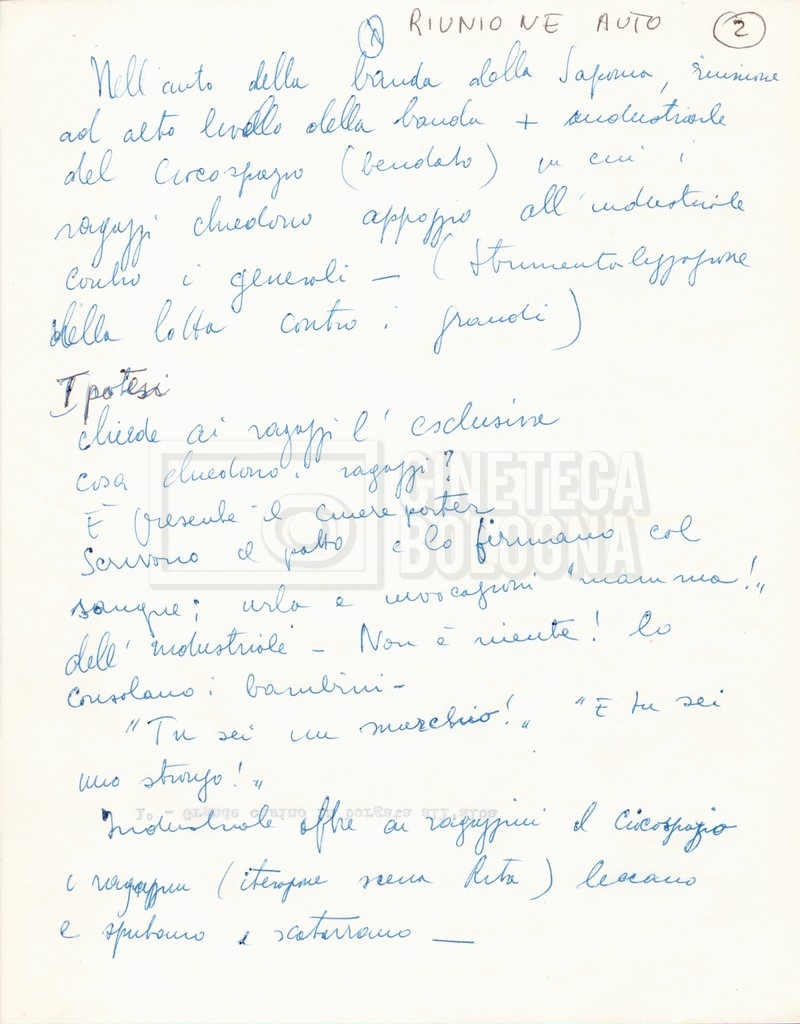 RIUNIONE AUTO 2
Nell'auto della banda della Sapona, riunione
ad alto livello della banda + industriale
del Ciocospazio (bendato) in cui i
ragazzi chiedono appoggio all'industriale
contro i generali — (strumentalizzazione
della lotta contro i grandi)
Ipotesi
chiede ai ragazzi l'esclusiva
cosa chiedono i ragazzi?
È presente il cinereporter
Scrivono il patto e lo firmano col
sangue; urla e invocazioni "mamma!"
dell'industriale — Non è niente! lo
consolano i bambini —
"Tu sei un mucchio!" "E tu sei
uno stronzo!"
1° - Grande casino in borgata all'alba
Industriale offre ai ragazzini il Ciocospazio
i ragazzini (iterazione scena Rita) leccano
e sputano e scatarrano —
CINETECA
BOLOGNA